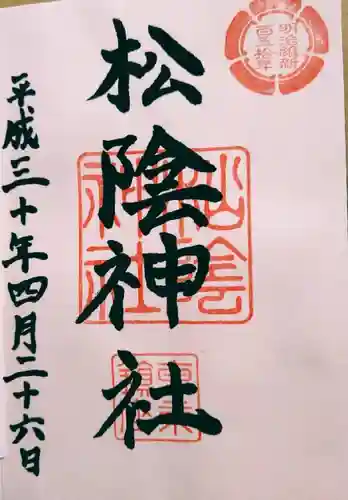 明治維新
百五拾年
松陰神社
松陰神社
平成三十年四月二十六日